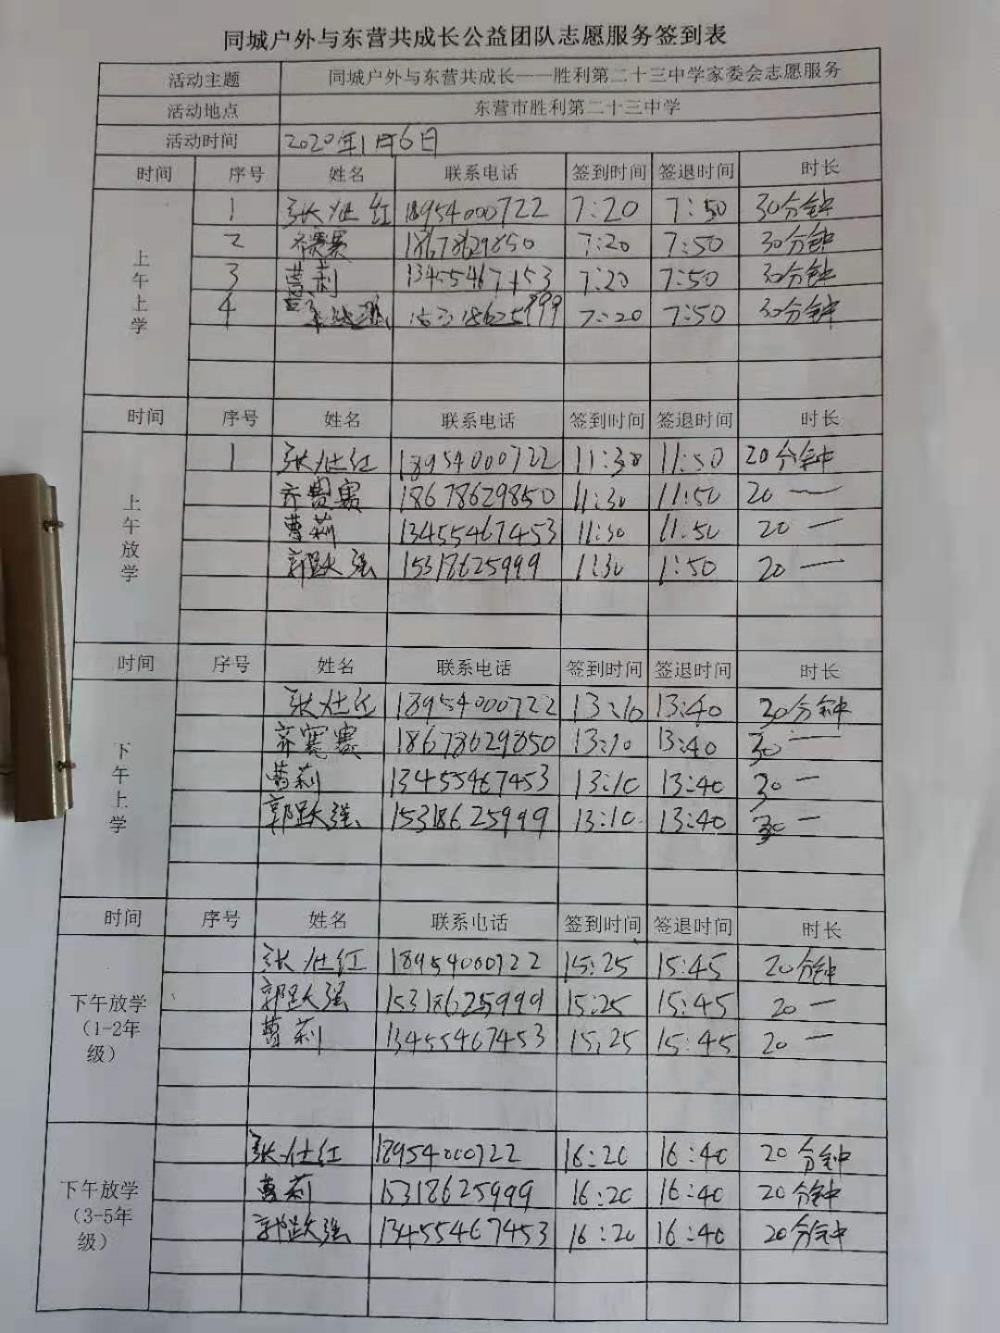 同城户外与东营共成长公益团队志愿服务签到表
活动主题 同城户外与东营共成长——胜利第二十三中学家委会志愿服务
活动地点 东营市胜利第二十三中学
活动时间 2020年1月6日
时间 序号 姓名 联系电话 签到时间 签退时间 时长
上午上学
1 张仕红 18954000722 7:20 7:50 30分钟
2 齐赛赛 18678629850 7:20 7:50 30分钟
3 曹莉 13455467453 7:20 7:50 30分钟
4 7:20 7:50 30分钟
时间 序号 姓名 联系电话 签到时间 签退时间 时长
上午放学
1 张仕红 18954000722 11:30 11:50 20分钟
齐赛赛 18678629850 11:30 11:50 20 —
曹莉 13455467453 11:30 11:50 20 —
郭跃强 15318625999 1:30 1:50 20 —
时间 序号 姓名 联系电话 签到时间 签退时间 时长
下午上学
张仕红 18954000722 13:10 13:40 30分钟
齐赛赛 18678629850 13:10 13:40 30 —
曹莉 13455467453 13:10 13:40 30 —
郭跃强 15318625999 13:10 13:40 30 —
时间 序号 姓名 联系电话 签到时间 签退时间 时长
下午放学
（1-2年
级）
张仕红 18954000722 15:25 15:45 20分钟
郭跃强 15318625999 15:25 15:45 20 —
曹莉 13455467453 15:25 15:45 20 —
下午放学
（3-5年
级）
张仕红 18954000722 16:20 16:40 20分钟
曹莉 15318625999 16:20 16:40 20分钟
郭跃强 13455467453 16:20 16:40 20分钟